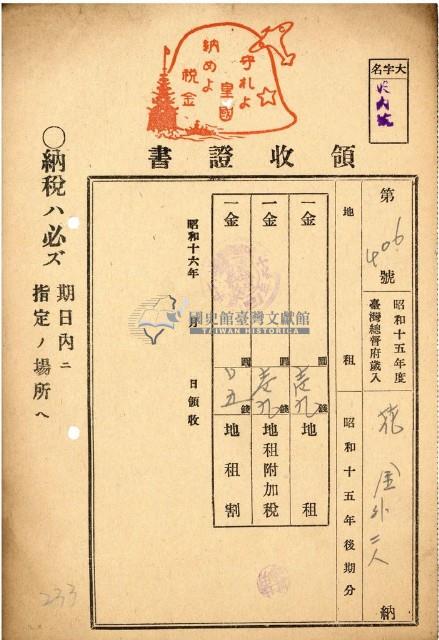 守れよ
皇國
納めよ
税金
大字名
領收證書
第406號
昭和十五年度
臺灣總督府歲入
地租
昭和十五年後期分
金外二人
納
一金
圓
壱九
錢
地租
一金
圓
壱九
錢
地租附加税
一金
圓
五
錢
地租割
昭和十六年 月 日領收
國史館臺灣文獻館
TAIWAN HISTORICA
○納税ハ必ズ期日内ニ
指定ノ場所ヘ
233